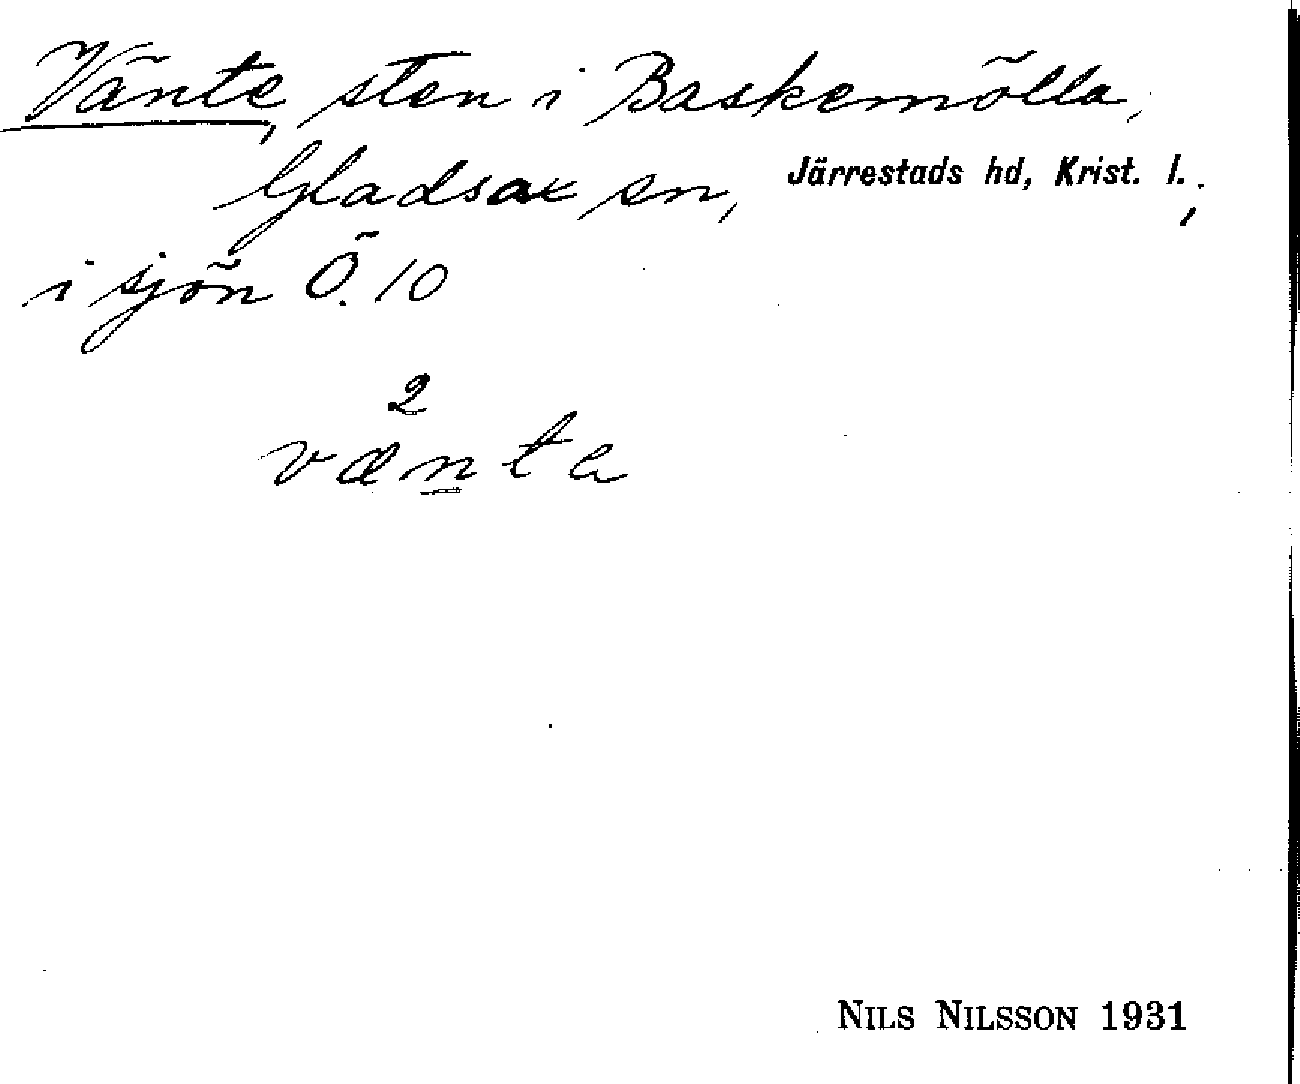 Vänte, sten i Baskemölla,
Gladsax sn, Järrestads hd, Krist. l.;
i sjön Ö. 10
2
vænta
NILS NILSSON 1931